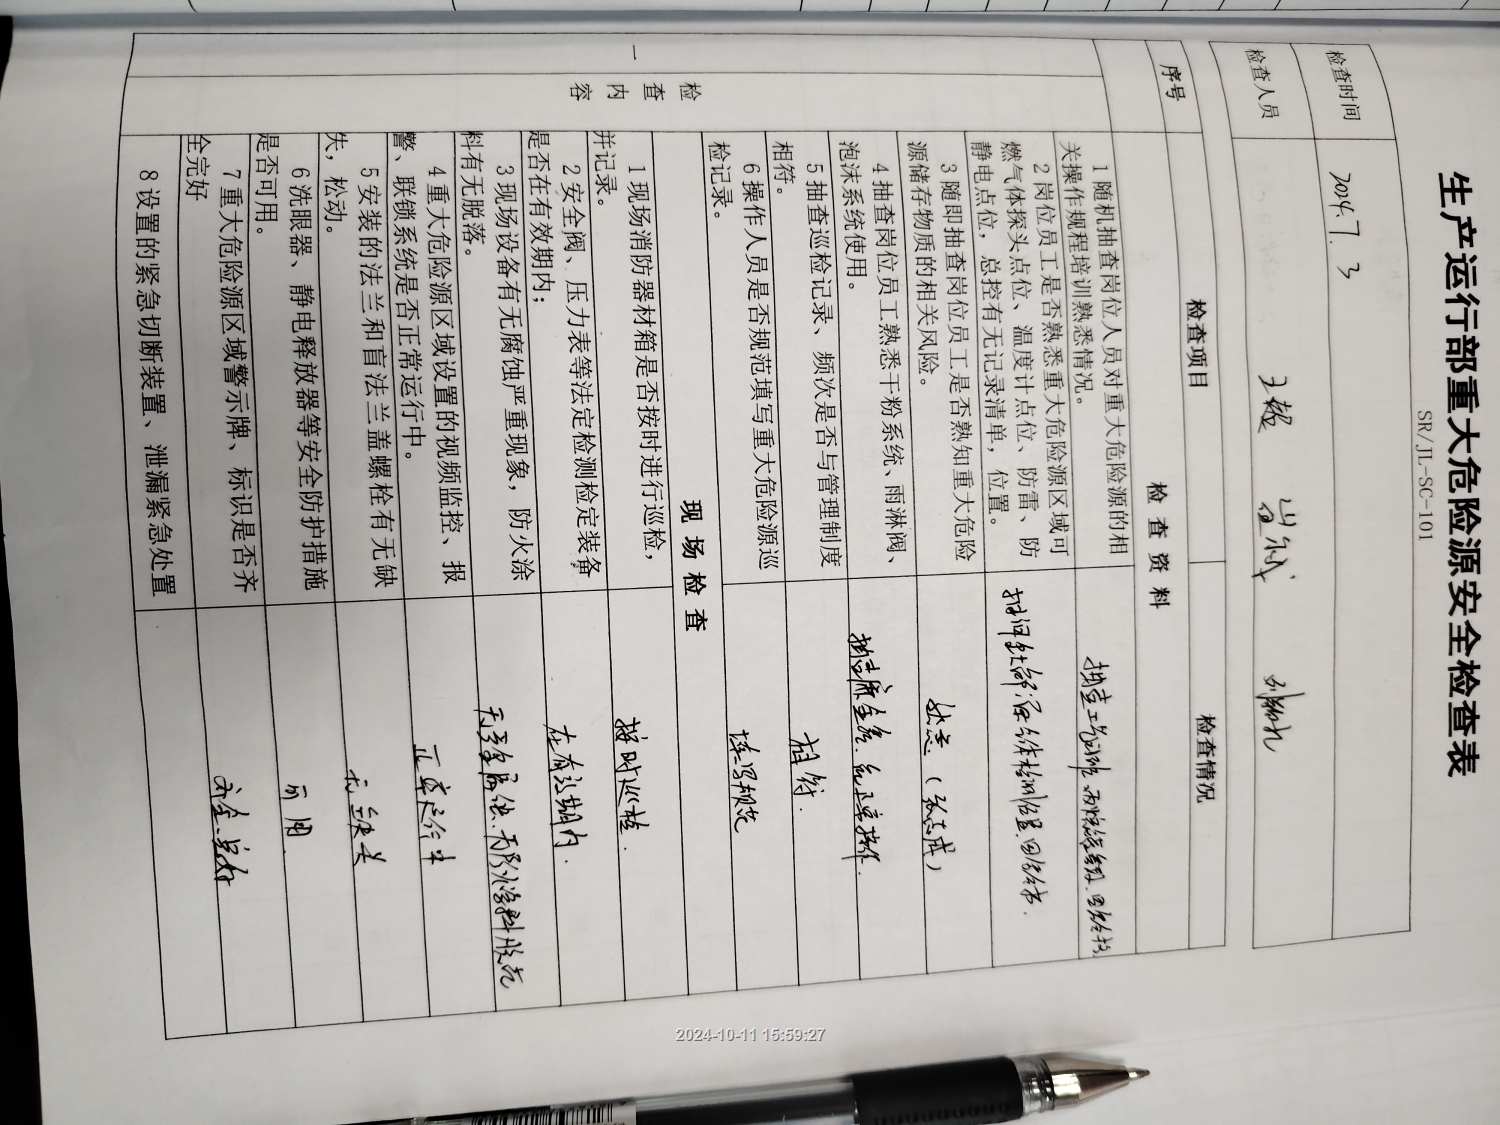 生产运行部重大危险源安全检查表
SR/JL-SC-101
检查时间 2024.7.3
检查人员
序号 检查项目 检查情况
检查资料
一
检查内容
1 随机抽查岗位人员对重大危险源的相
关操作规程培训熟悉情况。
2 岗位员工是否熟悉重大危险源区域可
燃气体探头点位、温度计点位、防雷、防
静电点位，总控有无记录清单，位置。
3 随即抽查岗位员工是否熟知重大危险
源储存物质的相关风险。
熟悉
4 抽查岗位员工熟悉干粉系统、雨淋阀、
泡沫系统使用。
5 抽查巡检记录、频次是否与管理制度
相符。
相符.
6 操作人员是否规范填写重大危险源巡
检记录。
填写规范
现场检查
1 现场消防器材箱是否按时进行巡检，
并记录。
按时巡检.
2 安全阀、压力表等法定检测检定装备
是否在有效期内；
在有效期内.
3 现场设备有无腐蚀严重现象，防火涂
料有无脱落。
无严重腐蚀.无防火涂料脱落
4 重大危险源区域设置的视频监控、报
警、联锁系统是否正常运行中。
正常运行中
5 安装的法兰和盲法兰盖螺栓有无缺
失，松动。
无缺失
6 洗眼器、静电释放器等安全防护措施
是否可用。
可用.
7 重大危险源区域警示牌、标识是否齐
全完好
齐全.完好
8 设置的紧急切断装置、泄漏紧急处置
2024-10-11 15:59:27